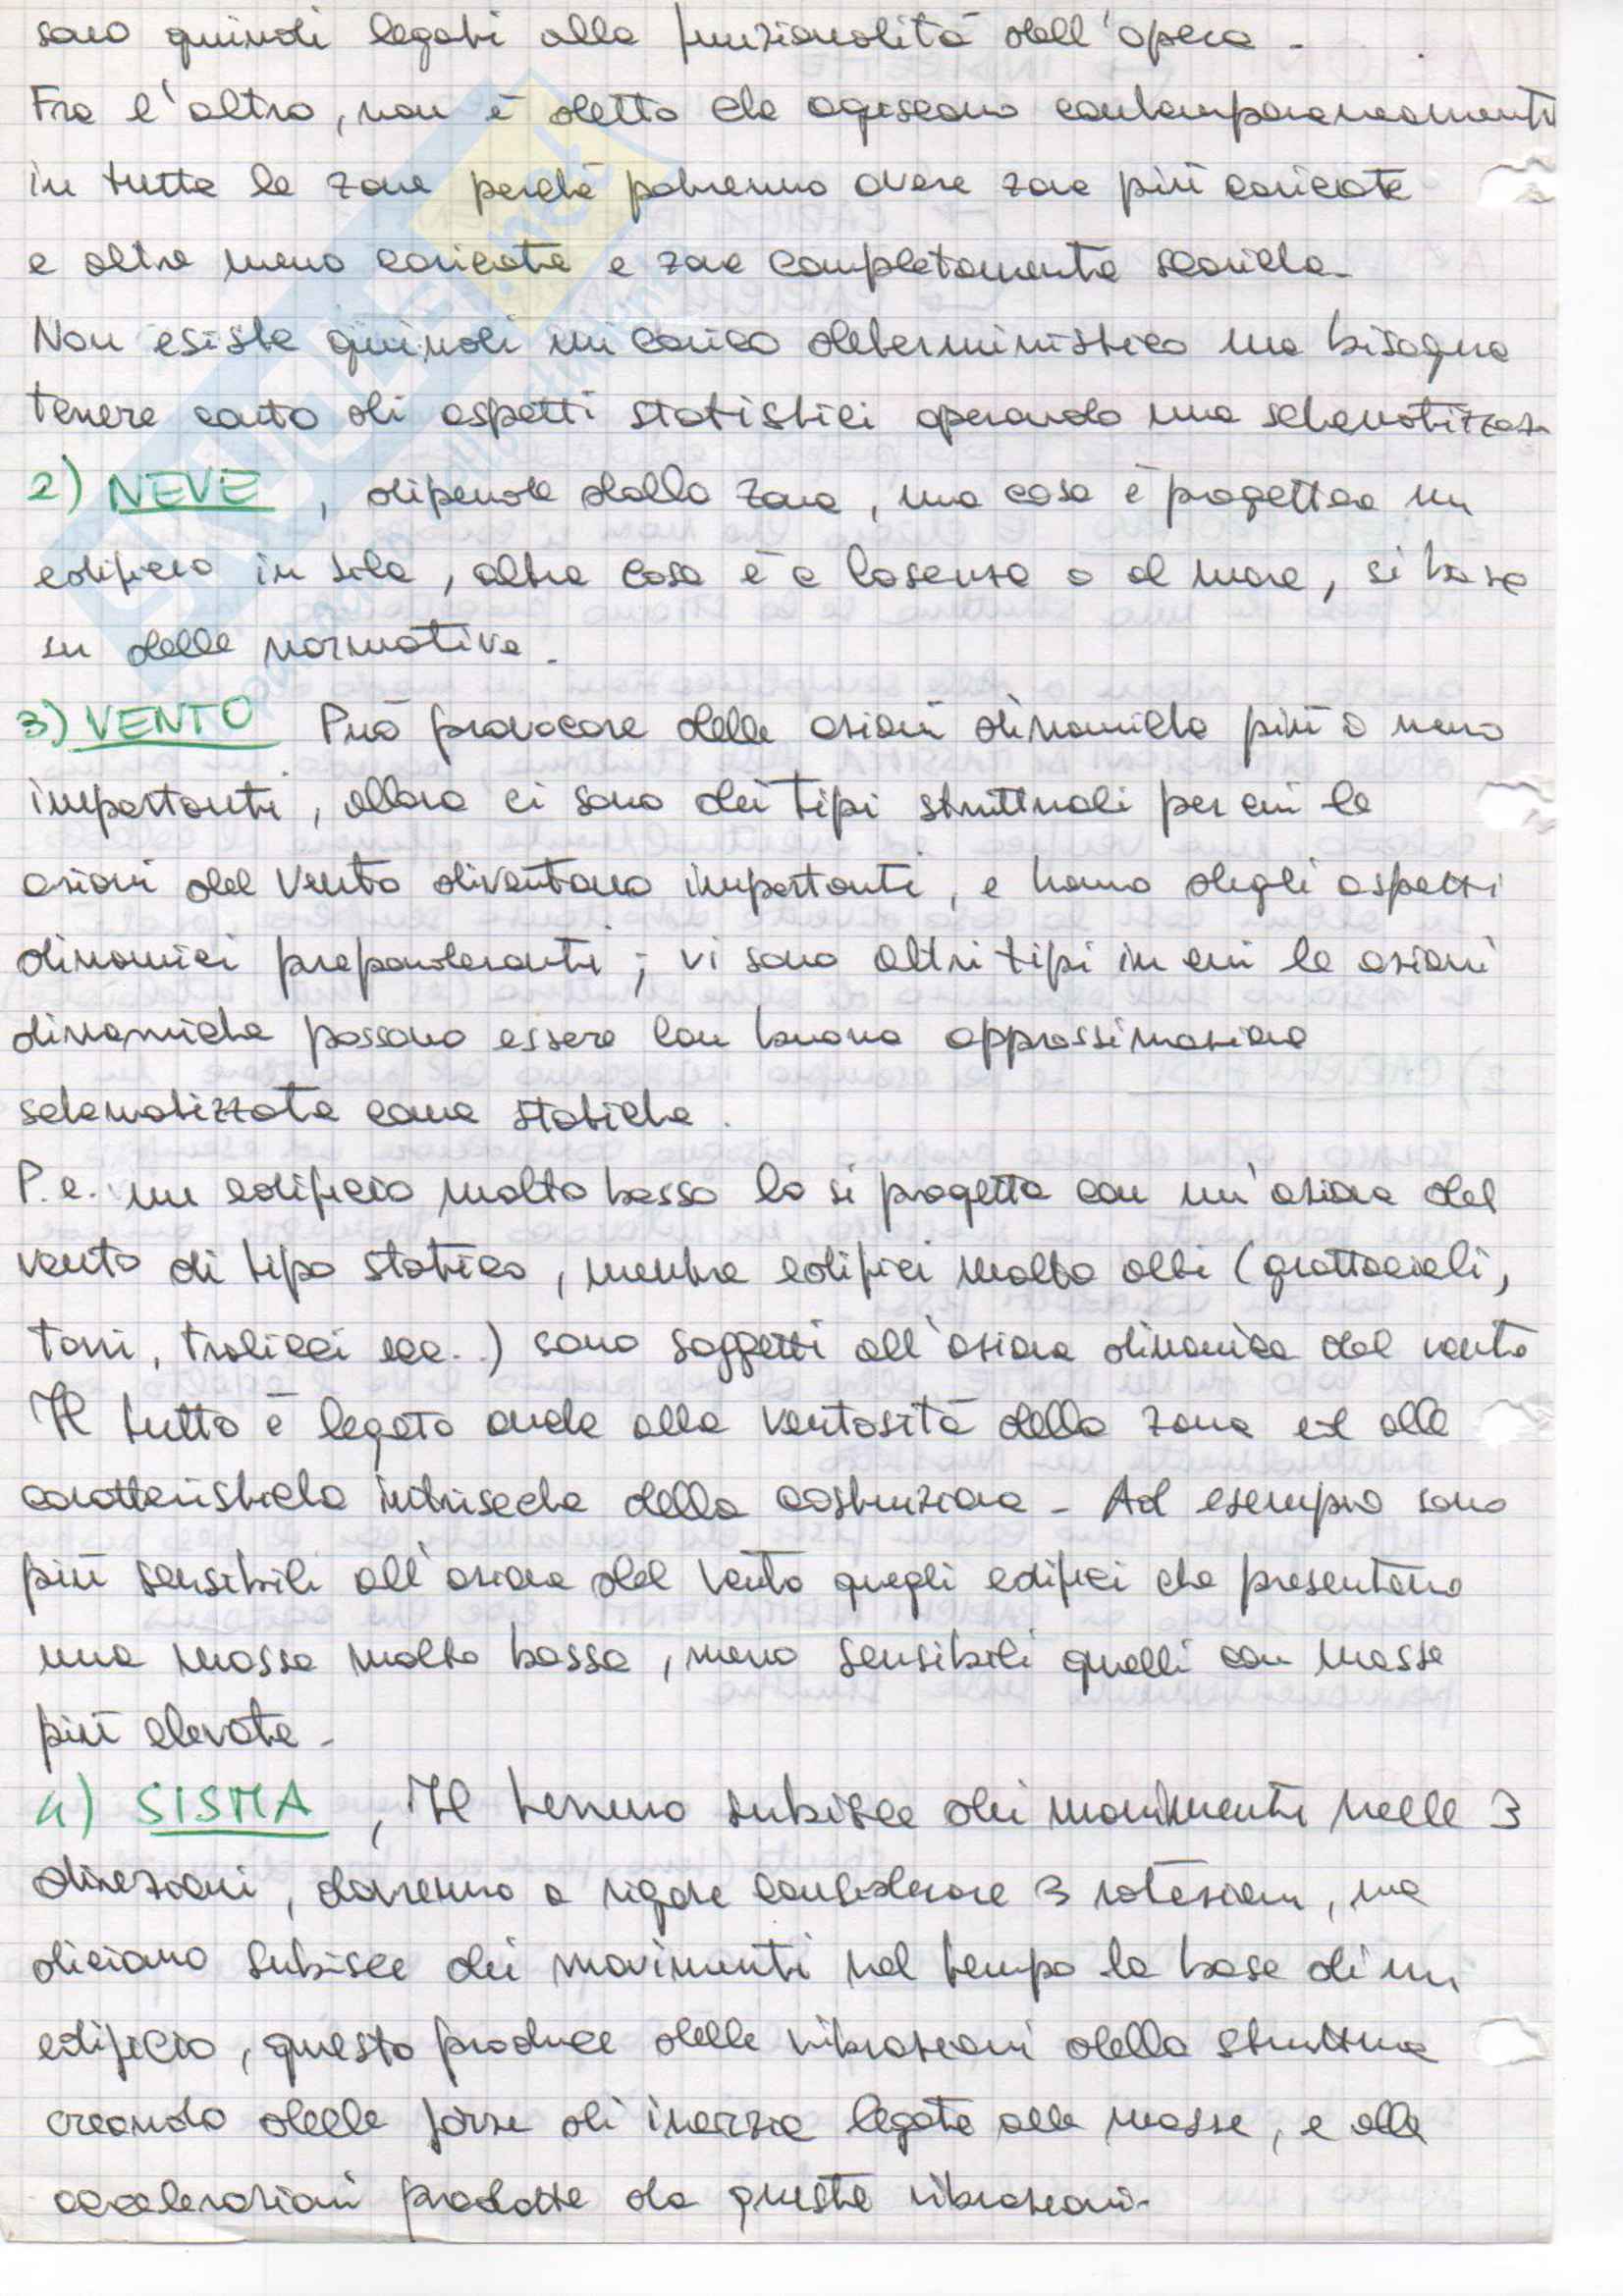 sono quindi legati alla funzionalità dell'opera -
Fra l'altro, non è detto che agiscano contemporaneamente
in tutte le zone perché potremmo avere zone più caricate
e altre meno caricate e zone completamente scariche -
Non esiste quindi un carico deterministico ma bisogna
tenere conto di aspetti statistici operando una schematizzaz.
2) NEVE, dipende dalla zona, una cosa è progettare un
edificio in sila, altra cosa è a Cosenza o al mare, si basa
su delle normative -
3) VENTO Può provocare delle azioni dinamiche più o meno
importanti, allora ci sono dei tipi strutturali per cui le
azioni del vento diventano importanti, e hanno degli aspetti
dinamici preponderanti; vi sono altri tipi in cui le azioni
dinamiche possono essere con buona approssimazione
schematizzate come statiche.
P.e. un edificio molto basso lo si progetta con un'azione del
vento di tipo statico, mentre edifici molto alti (grattacieli,
torri, tralicci ecc..) sono soggetti all'azione dinamica del vento
Il tutto è legato anche alla ventosità della zona ed alle
caratteristiche intriseche della costruzione - Ad esempio sono
più sensibili all'azione del vento quegli edifici che presentano
una massa molto bassa, meno sensibili quelli con masse
più elevate -
4) SISMA, Il terreno subisce dei movimenti nelle 3
direzioni, dovremmo a rigore considerare 3 rotazioni, ma
diciamo subisce dei movimenti nel tempo la base di un
edificio, questo produce delle vibrazioni della struttura
creando delle forze di inerzia legate alle masse, e alle
accelerazioni prodotte da queste vibrazioni -
SKUOLA.net